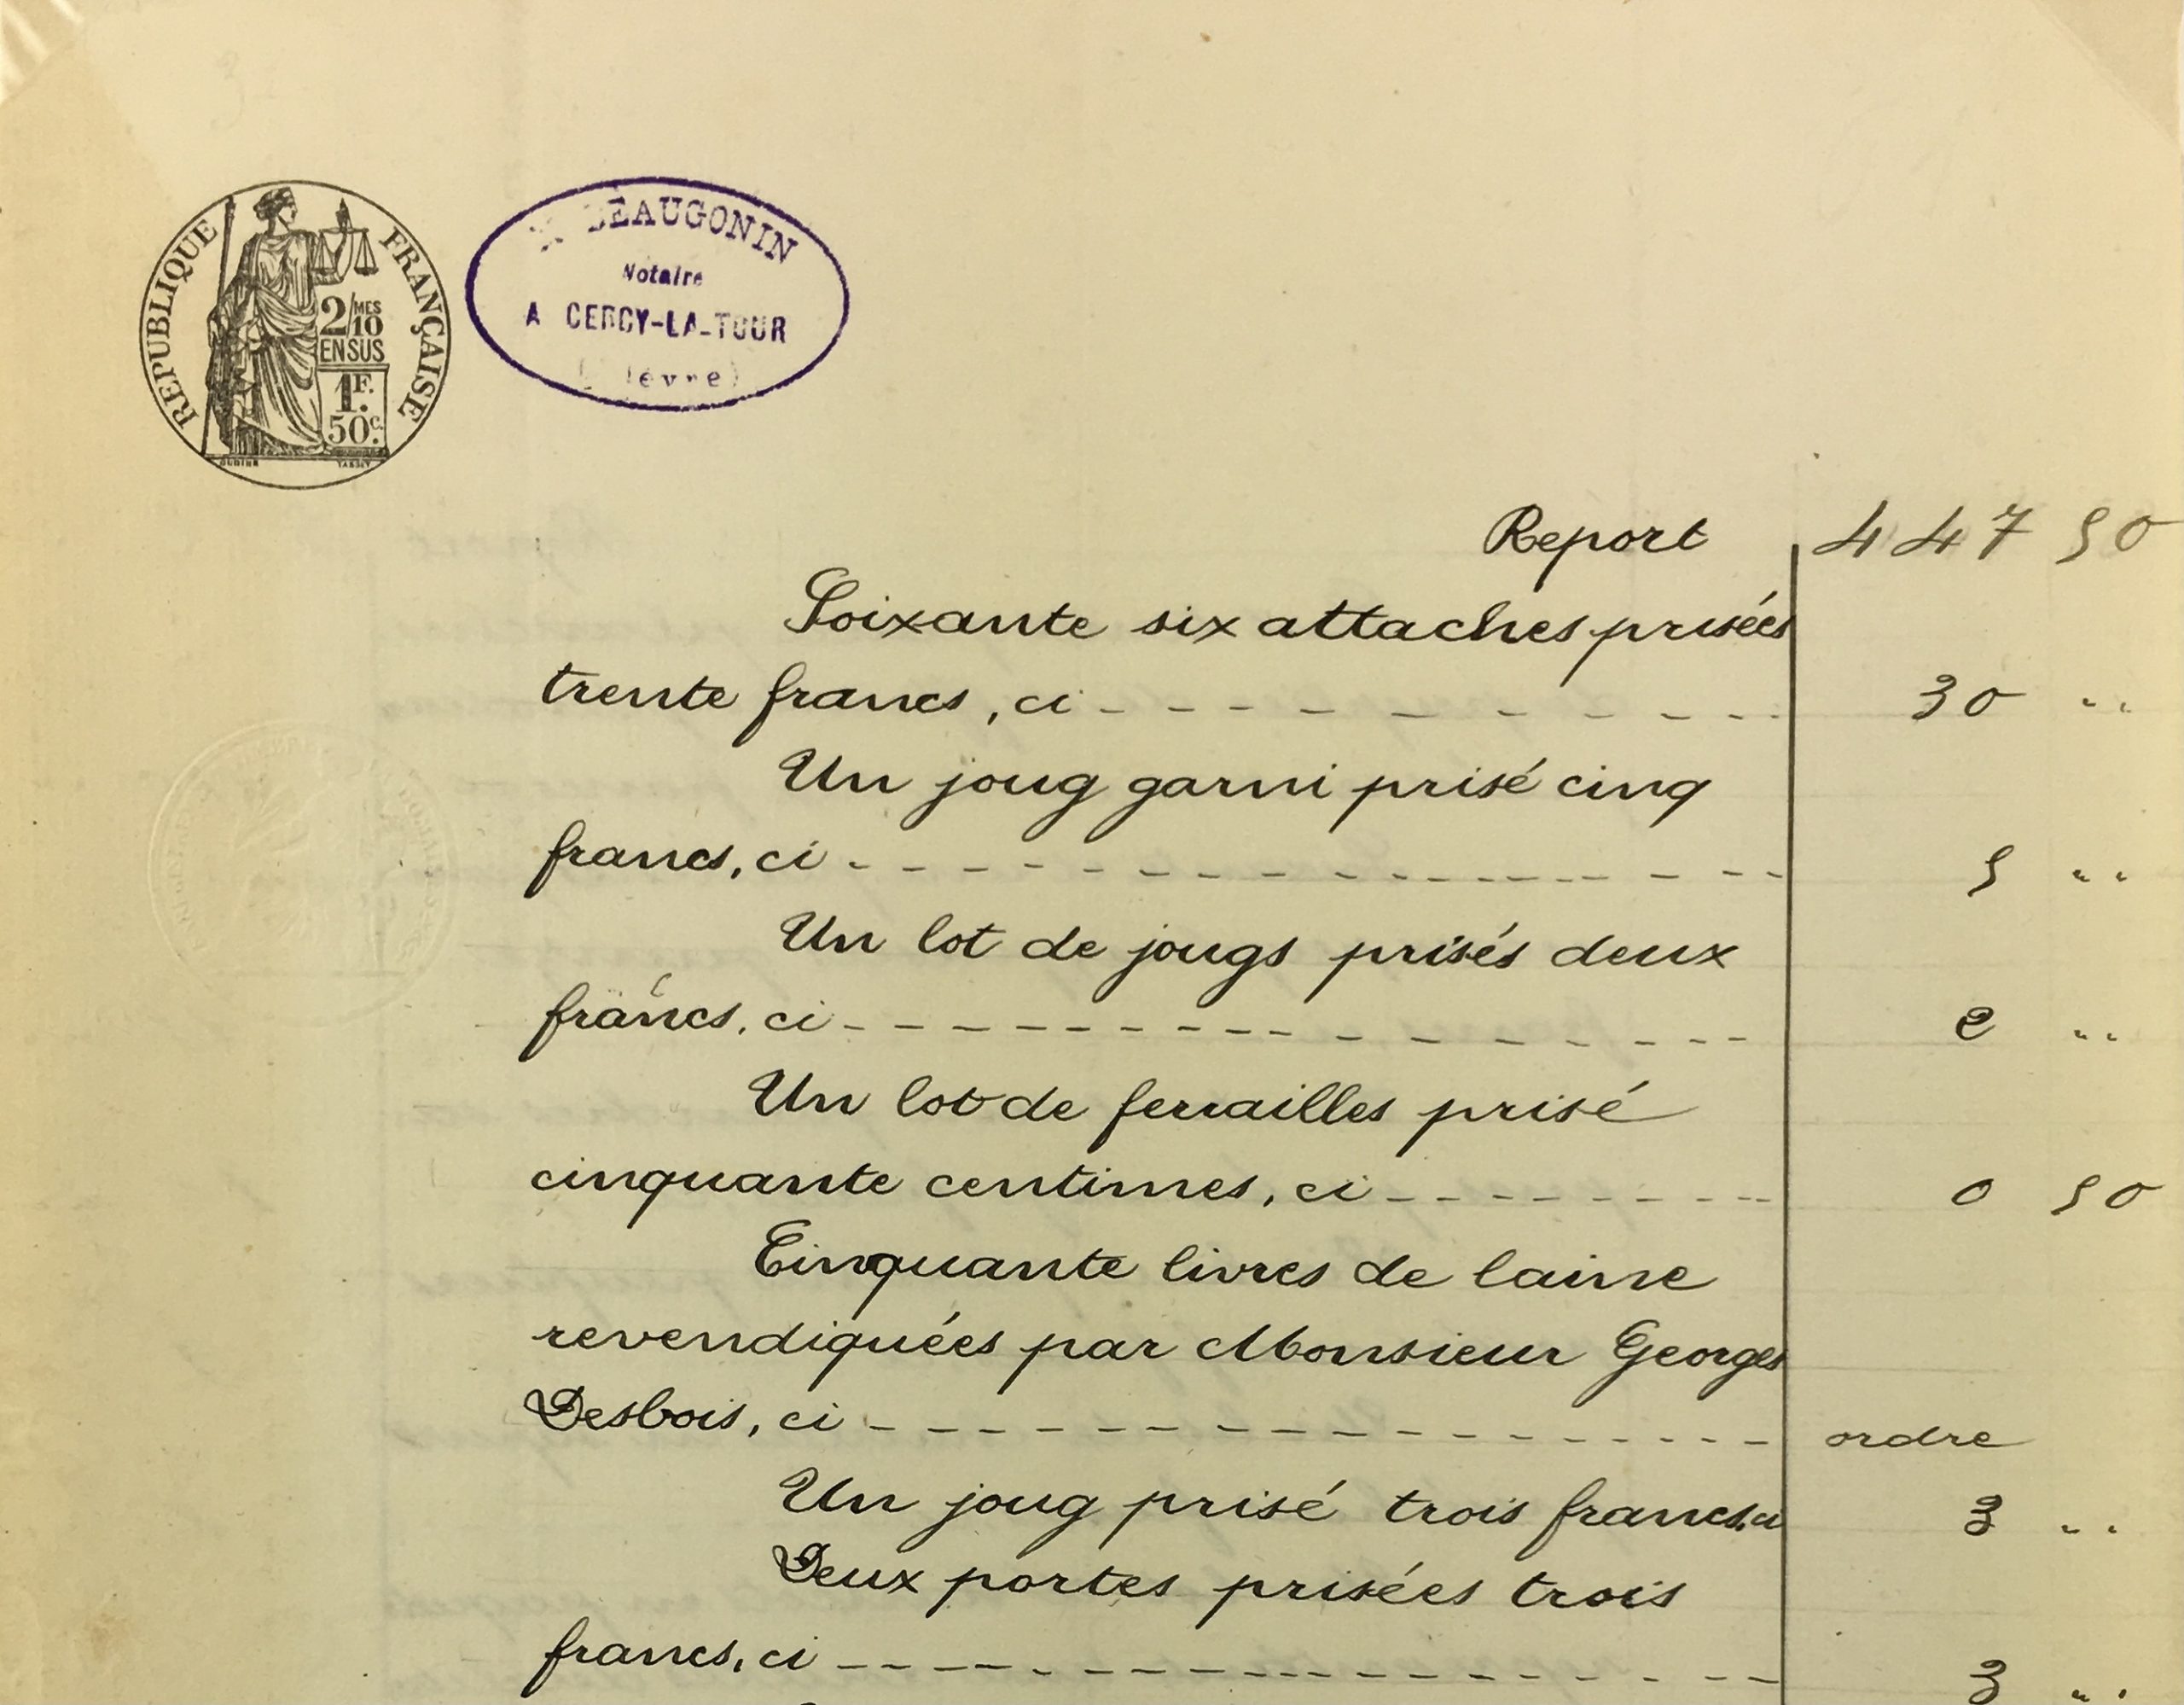 RÉPUBLIQUE FRANÇAISE
2/MES
10
EN SUS
1F.
50c.
BEAUGONIN
Notaire
A CERCY-LA-TOUR
(Nièvre)
Report 447 50
Soixante six attaches prisées
trente francs, ci - - - - - - - - 30 "
Un joug garni prisé cinq
francs, ci - - - - - - - - 5 "
Un lot de jougs prisés deux
francs, ci - - - - - - - - 2 "
Un lot de ferrailles prisé
cinquante centimes, ci - - - - - - - - 0 50
Cinquante livres de laine
revendiquées par Monsieur Georges
Desbois, ci - - - - - - - - ordre
Un joug prisé trois francs, ci 3 "
Deux portes prisées trois
francs, ci - - - - - - - - 3 "